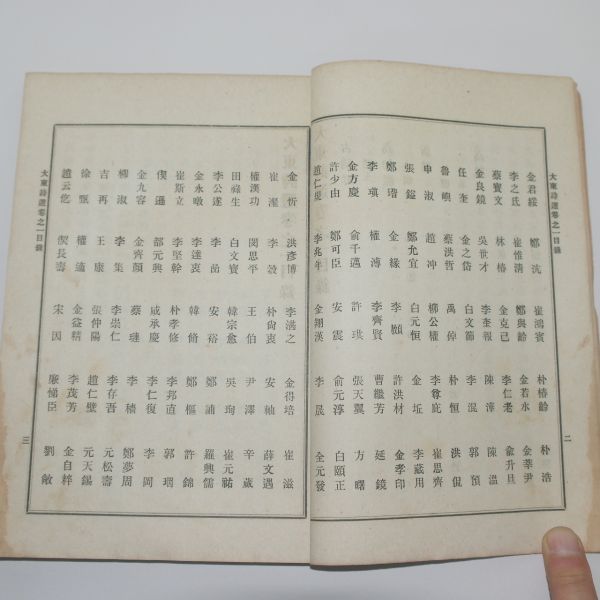 大東詩選卷之一目錄
金君綏 鄭沆 崔鴻賓 朴椿齡 朴浩
李之氐 崔惟清 鄭與齡 金若水 金莘尹
蔡寶文 林椿 金克己 李仁老 俞升旦
金良鏡 吳世才 李奎報 陳澕 陳溫
任奎 金之岱 白文節 李混 郭預
魯嶼 蔡洪哲 禹倬 朴恒 洪侃
申淑 趙冲 柳公權 李尊庇 崔思齊
張鎰 鄭允宜 白元恒 金坵 李藏用
鄭瑎 金緣 李頫 許洪材 金孝印
李瑱 權溥 李齊賢 曹繼芳 延鏡
金方慶 俞千遇 許珙 張天翼 方曙
許少由 鄭可臣 安震 俞元淳 白頤正
趙仁規 李兆年 金翔漢 李晟 全元發
二
金忻 洪彥博 李湛之 金得培 崔滋
崔瀣 李穀 朴尙衷 安軸 薛文遇
權漢功 閔思平 王伯 尹澤 辛蕆
田祿生 白文寶 韓宗愈 吳珣 崔元祐
李公遂 李嵒 安裕 鄭誧 羅興儒
金永暾 李達衷 韓脩 鄭樞 許錦
崔斯立 李堅幹 朴孝修 李邦直 郭珚
偰遜 都元興 咸承慶 李仁復 李岡
金九容 金齊顏 蔡璉 李穡 鄭夢周
柳淑 李集 李崇仁 李存吾 元松壽
吉再 王康 張仲陽 趙仁璧 元天錫
徐甄 權適 金益精 李茂芳 金自粹
趙云仡 偰長壽 宋因 廉悌臣 劉敞
大東詩選卷之一目錄
三